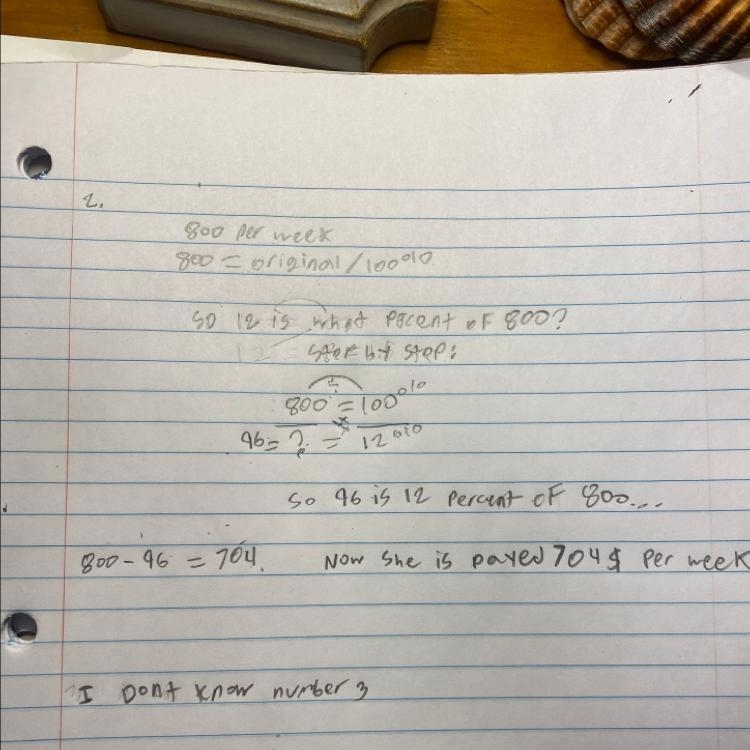 2.
800 per week
800 = original / 100%
SO 12 is what percent of 800?
12 = step by step:
÷
800 = 100%
×
96 = ? = 12%
So 96 is 12 percent of 800...
800 - 96 = 704. Now she is payed 704$ per week
I Dont know number 3